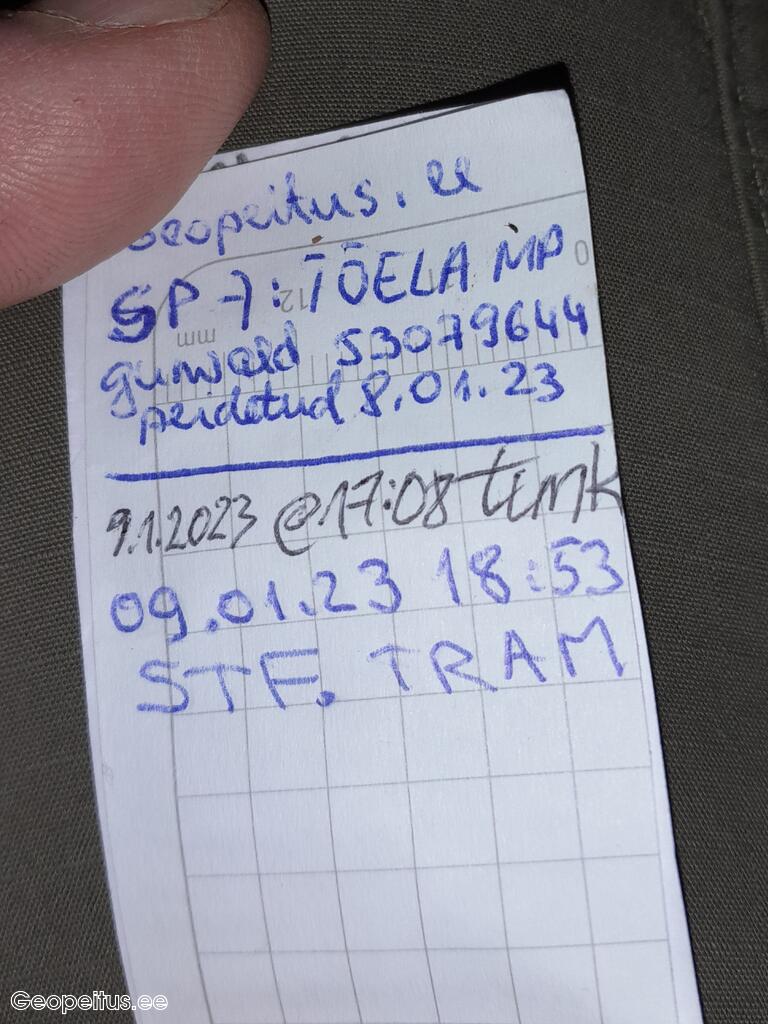 geopeitus.ee
SP 7: TÕELA MP
gunward 53079644
peidetud 8.01.23
9.1.2023 @17:08 timk
09.01.23 18:53
STF. TRAM
mm
12
0
Geopeitus.ee